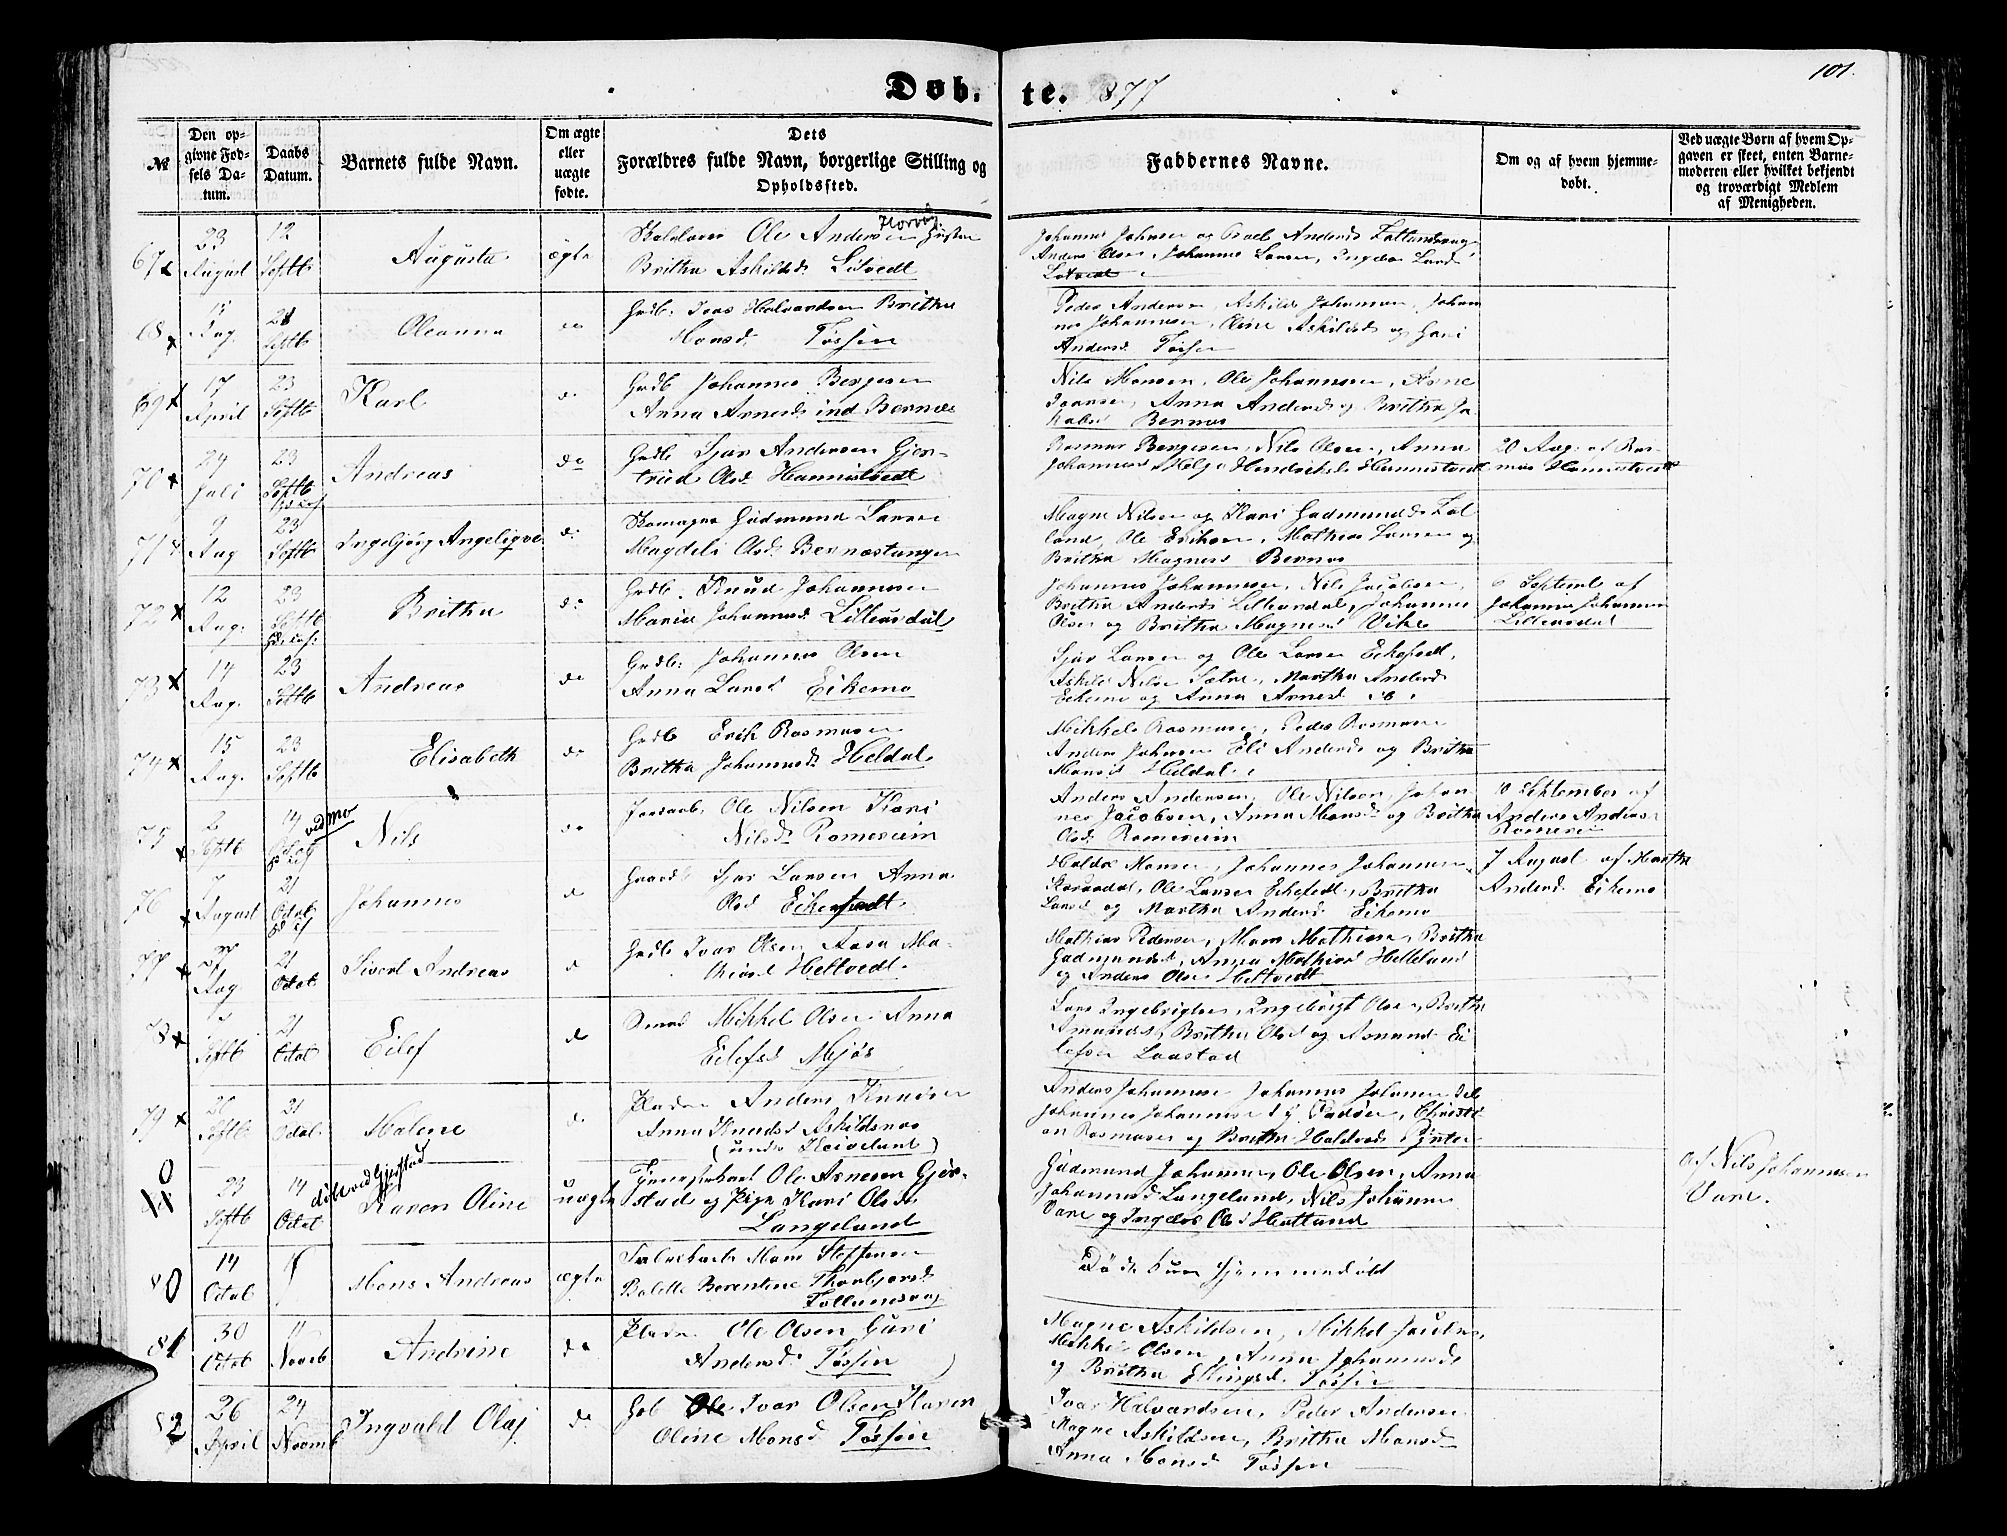 Døb. te. 1877
101.
№
Den op-
givne Fød-
sels Da-
tum.
Daabs
Datum.
Barnets fulde Navn.
Om ægte
eller
uægte
fødte.
Dets
Forældres fulde Navn, borgerlige Stilling og
Opholdssted.
Faddernes Navne.
Om og af hvem hjemme-
døbt.
Ved uægte Børn af hvem Op-
gaven er skeet, enten Barne-
moderen eller hvilket bekjendt
og troværdigt Medlem
af Menigheden.
67
23
August
12
Septb
Augusta
ægte
Ole Andersen
Britha Askildsd Litvedt
Johannes Johnsen og
Anders Olsen, Johannes Larsen, Lars
68
Aug.
Septb
Oleanna
do
Gdb. Ivar Halvardsen Britha
Monsd. Tøssen
Peder Andersen, Askild Johannesen, Johan
nes Johannesen, Oline Askildsd og Guri
Andersd. Tøssen
69
17
April
23
Septb
Karl
do
Grdb Johannes Børgesen
Anna Arnesd ind Bernæs
Nils Monsen, Ole Johannesen, Arne
Ivarsen, Anna Andersd og Britha Ja
kobsd Bernæs
70
24
Juli
23
Septb
Andreas
do
Grdb Sjur Andersen Gjer-
trud Olsd. Hannistvedt
Rasmus Børgesen, Nils Olsen, Anna
Johannesd Helge Hendriksd Hannistvedt
20 Aug. af Ras-
mus Hannistvedt
71
9
Aug
23
Septb
Ingebjørg Angeliqve
do
Gudmund Larsen
Magdeli Olsd. Bernæstangen
Magne Nilsen og Kari Gudmundsd. Fol
land, Ole Eriksen, Mathias Larsen og
Britha Magnesd Bernæs
72
12
Aug.
23
Septb
Britha
do
Grdb. Knud Johannesen
Maria Johannesd. Lilleasdal
Johannes Johannesen, Nils Jacobsen
Britha Andersd Lilleasdal, Johannes
Olsen og Britha Magnesd Vike
Septemb af
Johannes Johannesen
Lilleasdal
73
14
Aug.
23
Septb
Andreas
do
Grdb. Johannes Olsen
Anna Larsd Eikemo
Sjur Larsen og Ole Larsen Eikefedt,
Askild Nilsen Sætre, Martha Andersd
Eikemo og Anna Arnesd
74
15
Aug.
23
Septb
Elisabeth
do
Grdb Erik Rasmusen
Britha Johannesd. Heldal
Mikkel Rasmusen, Peder Rasmusen
Anders Johnsen Eli Andersd og Britha
Monsd Heldal
75
2
Septb
14
Octob
ved Mo
Nils
do
Ole Nilsen Kari
Nilsd. Romereim
Anders Andersen, Ole Nilsen, Johan
nes Jacobsen, Anna Monsd og Britha
Olsd. Romereim
10 September af
Anders Andersen
76
7
August
21
Octob
Johannes
do
Gaardb. Sjur Larsen Anna
Olsd Eikefedt
Haldor Monsen, Johannes Johannesen
Ole Larsen Eikefedt, Britha
Larsd og Martha Andersd. Eikemo
7 August af Martha
Andersd. Eikemo
77
Aug
21
Octob
Sivert Andreas
d
Grdb Ivar Olsen Anna Ma-
thiasd Heltvedt.
Mathias Pedersen, Mons Mathiesen, Britha
Gudmundsd, Anna Mathiasd Helleland
og Anders Olsen Heltvedt
78
Septb
21
Octob
Eilef
do
Mikkel Olsen Anna
Eilefsd Mjøs
Lars Ingebrigtsen, Ingebrigt Olsen, Britha
Amundsd, Britha Olsd og Asmund Ei
lefsen Laastad
79
26
Septb
21
Octob.
Malene
do
Pladsm Anders Knudsen
Anna Knudsd Askildsnæs
(under Kleiveland)
Anders Johannesen Johannes Johannesen
Johannes Johannesen Christi
an Rasmusen og Britha Haldorsd Pynten
23
Septb
14
Octob
døbt ved Gjerstad
Karen Oline
uægte
Tjenestekarl Ole Arnesen Gjer-
stad og Pige Kari Olsdr
Langeland
Gudmund Johannesen, Ole Olsen, Anna
Johannesd Langeland, Nils Johannesen
Vare og Ingeborg Olsd Hatland
af Nils Johannesen
Vare.
80
14
Octob
Mons Andreas
ægte
Mons Steffensen
Bolette Berentine Thorbjørnsd
Follandsvaag
Døde uden hjemmedøbt
81
30
Octob
11
Novb
Andrine
do
Pladsm Ole Olsen Guri
Andersd. Tøssen
Magne Askildsen, Mikkel
Mikkel Olsen, Anna Johannesd
og Britha Ellingsd. Tøssen
82
26
April
24
Novemb
Ingvald Olaj
do
Gdb Ole Ivar Olsen Karen
Oline Monsd Tøssen
Ivar Halvardsen, Peder Andersen
Magne Askildsen, Britha Monsd
Anna Monsd Tøssen